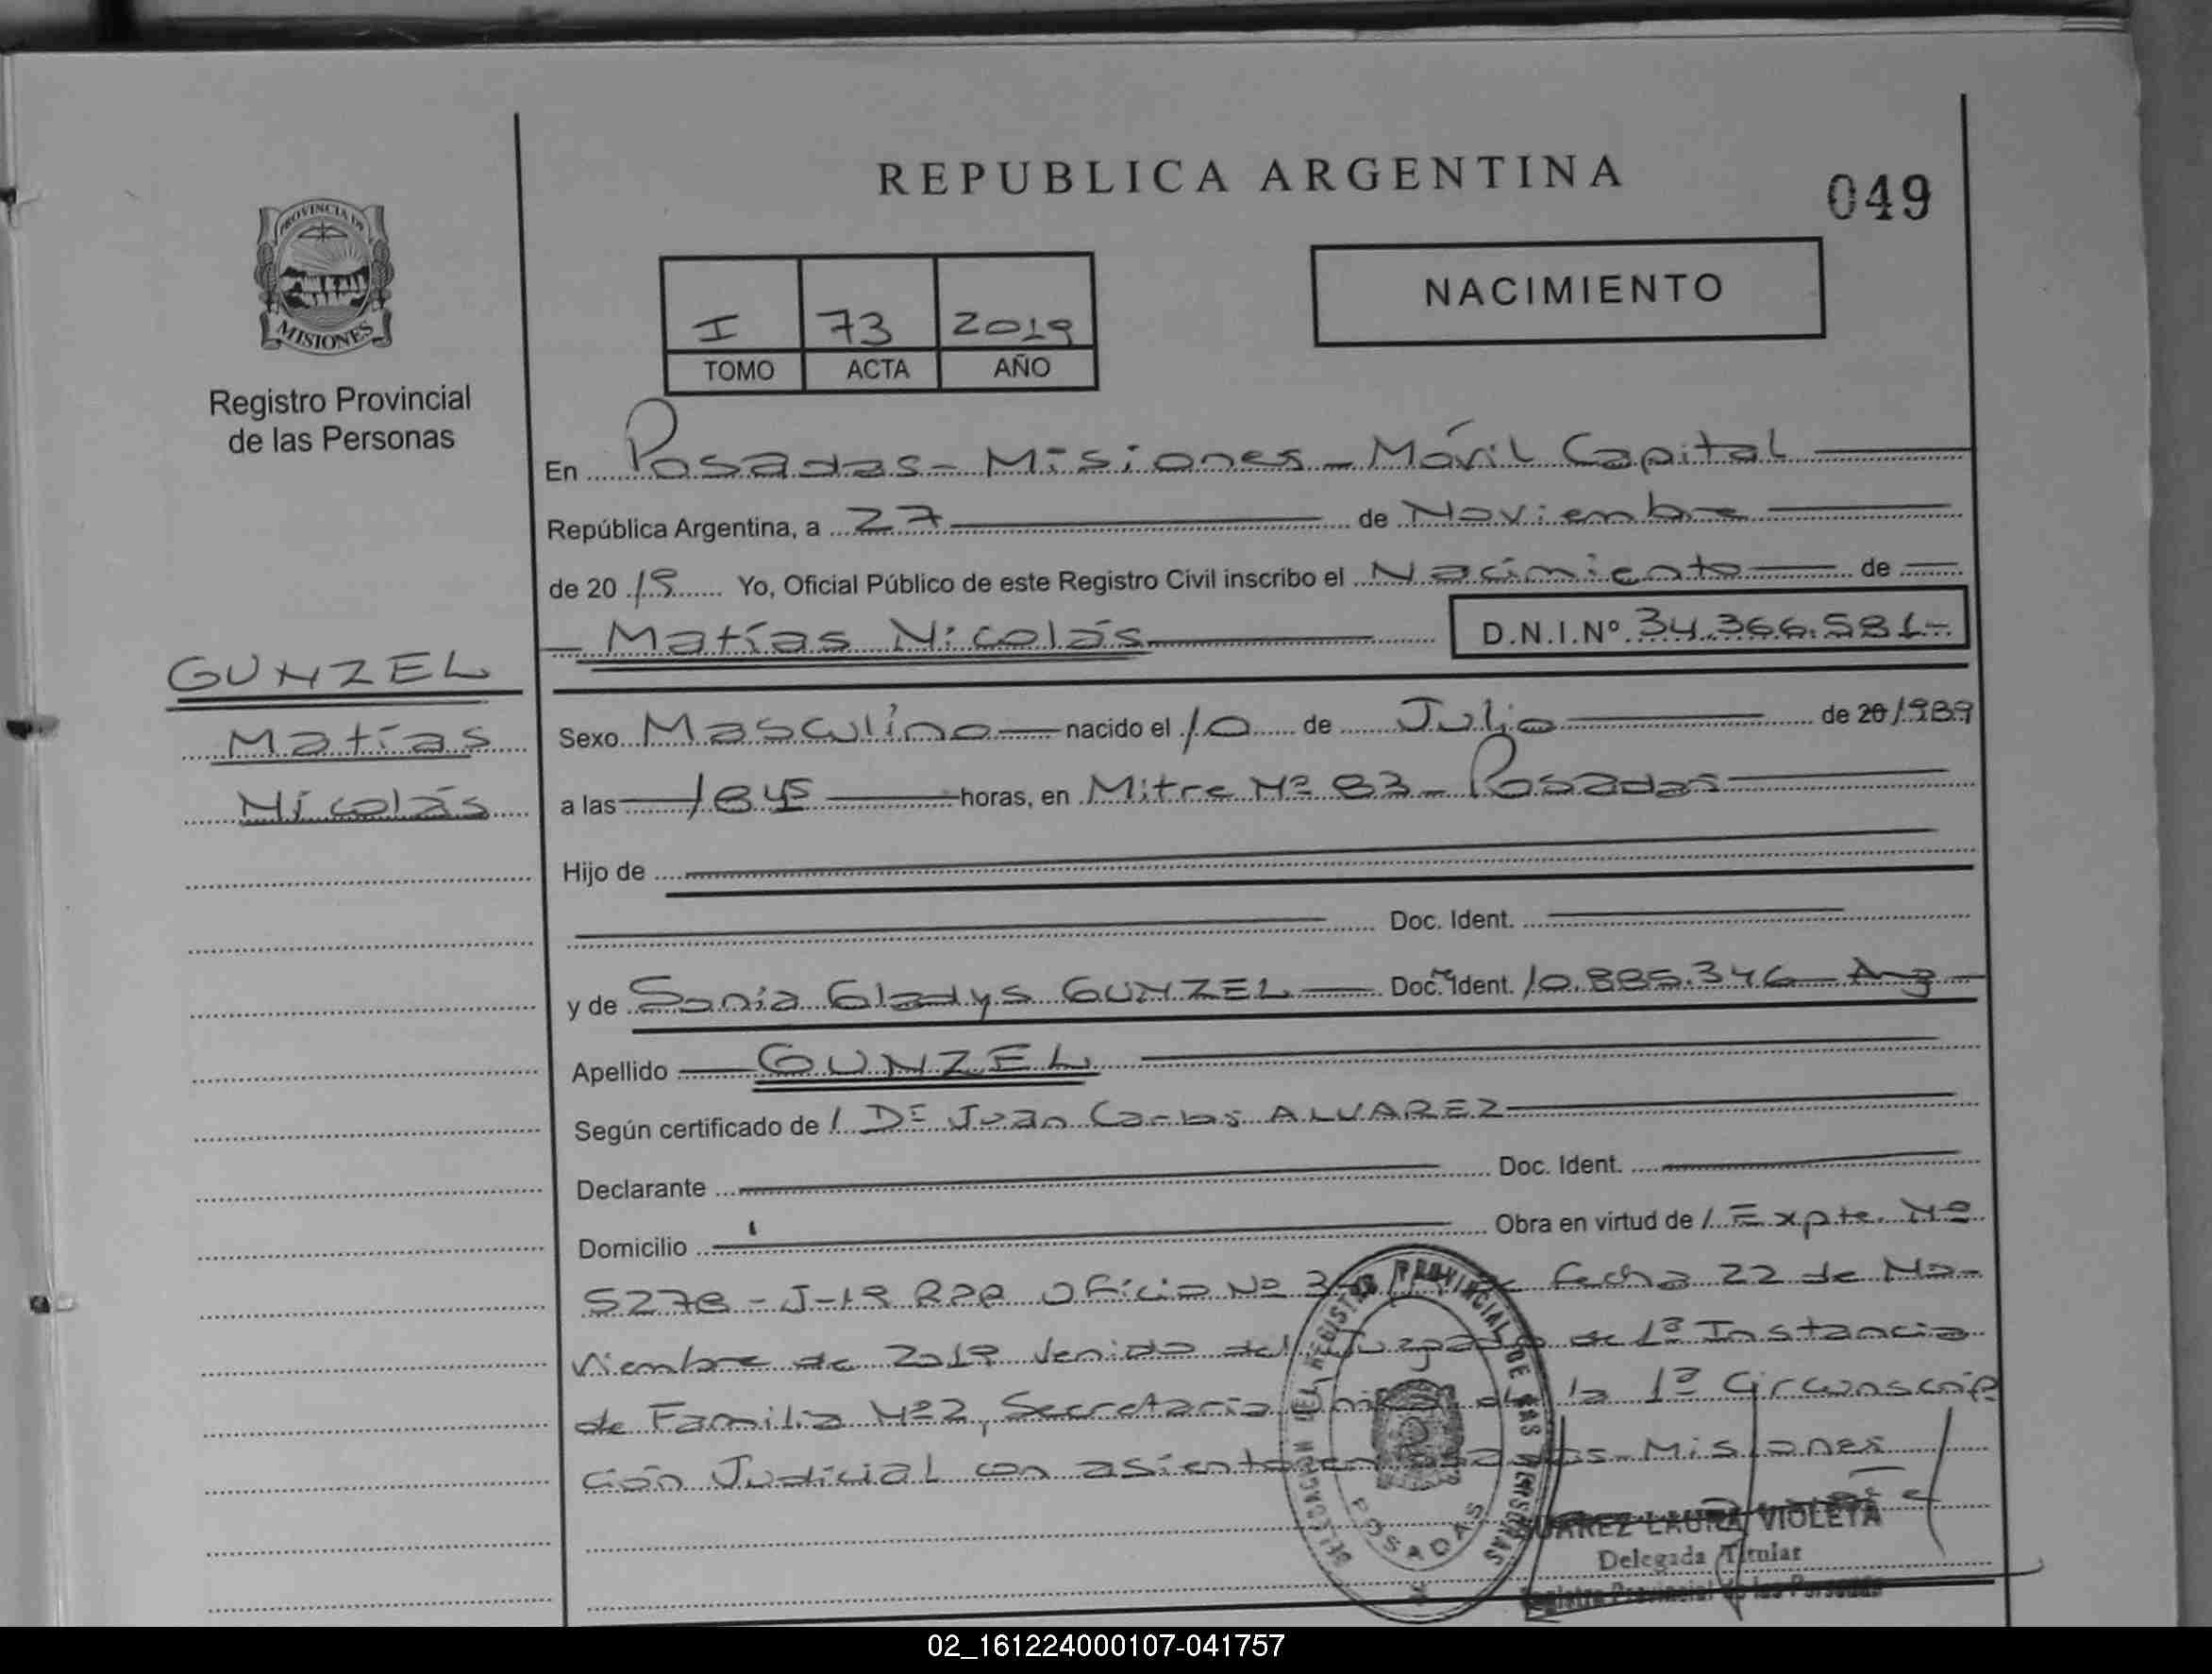 REPUBLICA ARGENTINA
049
PROVINCIA DE
MISIONES
Registro Provincial
de las Personas
I 73 2019
TOMO ACTA AÑO
NACIMIENTO
En Posadas - Misiones - Móvil Capital
República Argentina, a 27 de Noviembre
de 20 19 Yo, Oficial Público de este Registro Civil inscribo el Nacimiento de
Matías Nicolás D.N.I.Nº 34.366.581-
GUNZEL
Matías
Nicolás
Sexo Masculino nacido el 10 de Julio de 20 1989
a las 1845 horas, en Mitre Nº 83 - Posadas
Hijo de
Doc. Ident.
y de Sonia Gladys GUNZEL Doc. Ident. 10.885.346 - Arg
Apellido GUNZEL
Según certificado de / Dr Juan Carlos ALVAREZ
Declarante Doc. Ident.
Domicilio Obra en virtud de / Expte. Nº
5278 - J-19 RPP Oficio Nº fecha 22 de No-
viembre de 2019 venido del Juzgado de 1ª Instancia
de Familia Nº2, Secretaría de la 1ª Circunscrip
ción Judicial con asiento en Posadas - Misiones
DELEGACION DEL REGISTRO PROVINCIAL DE LAS PERSONAS
POSADAS
SUAREZ LAURA VIOLETA
Delegada Titular
Registro Provincial de las Personas
02_161224000107-041757